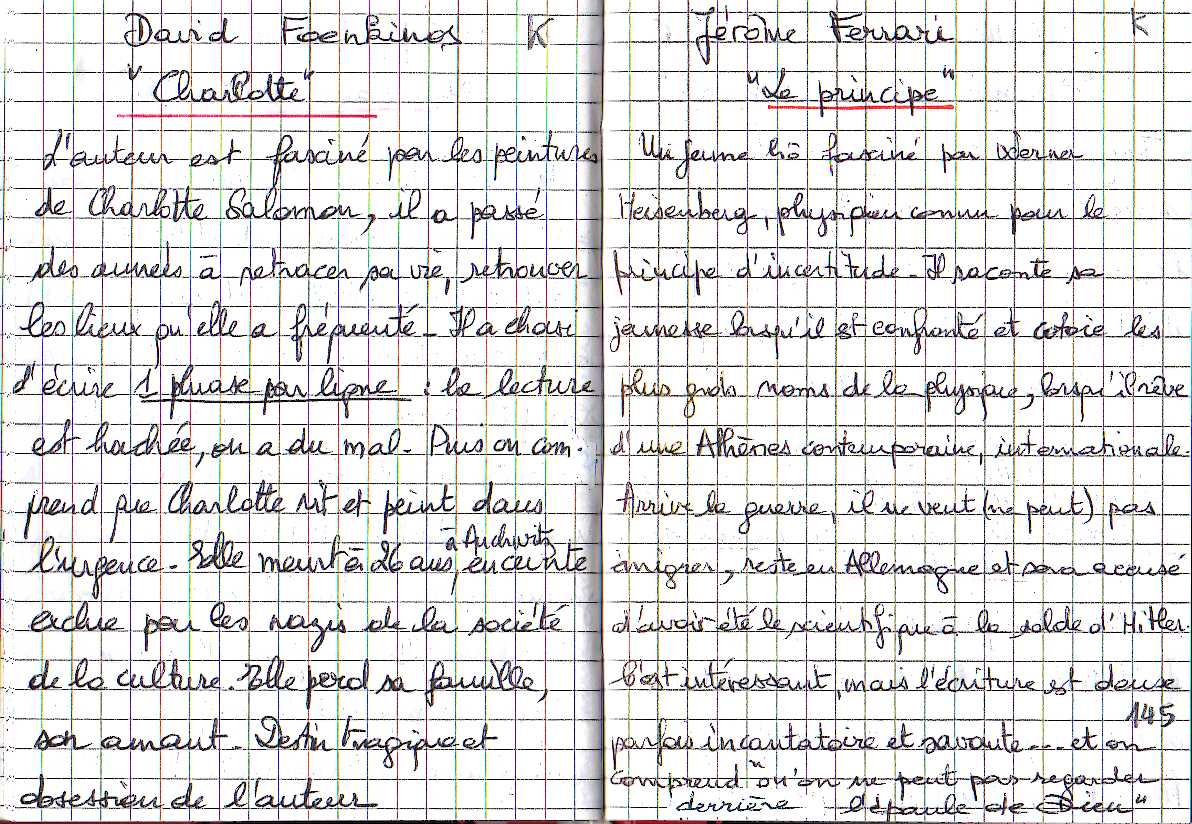 David Foenkinos K
"Charlotte"
L'auteur est fasciné par les peintures
de Charlotte Salomon, il a passé
des années à retracer sa vie, retrouver
les lieux qu'elle a fréquenté - Il a choisi
d'écrire 1 phrase par ligne : la lecture
est hachée, on a du mal. Puis on com-
prend que Charlotte vit et peint dans
l'urgence - Elle meurt à 26 ans, à Auchwitz enceinte
exclue par les nazis de la société
de la culture. Elle perd sa famille,
son amant - Destin tragique et
obsession de l'auteur
Jérôme Ferrari K
"Le principe"
Un jeune hô fasciné par Werner
Heisenberg, physicien connu pour le
principe d'incertitude - Il raconte sa
jeunesse lorsqu'il est confronté et cotoie les
plus grds noms de la physique, lorsqu'il rêve
d'une Athènes contemporaine, internationale.
Arrive la guerre, il ne veut (ne peut) pas
émigrer, reste en Allemagne et sera accusé
d'avoir été le scientifique à la solde d'Hitler.
C'est intéressant, mais l'écriture est dense
145
parfois incantatoire et savante... et on
comprend "qu'on ne peut pas regarder
derrière l'épaule de Dieu"